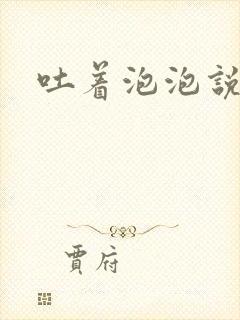 吐着泡泡說
賈府